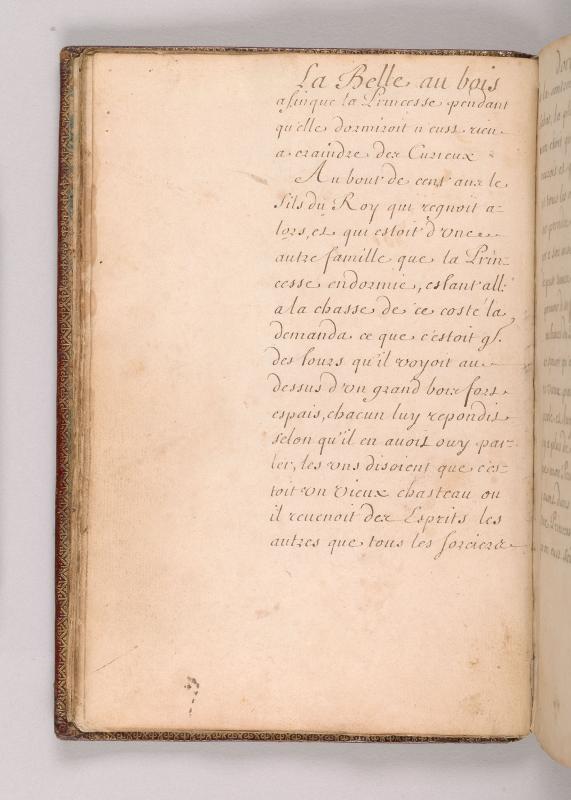 La Belle au bois
afin que la Princesse pendant
qu'elle dormiroit n'eust rien
a craindre des Curieux
Au bout de cent ans le
fils du Roy qui regnoit a-
lors, et qui estoit d'vne
autre famille que la Prin-
cesse endormie, estant allé
a la chasse de ce costé la,
demanda ce que c'estoit q̃
des tours qu'il voyoit au
dessus d'vn grand bois fort
espais, chacun luy repondit
selon qu'il en auoit ouy par-
ler, les vns disoient que c'es-
toit vn vieux chasteau ou
il reuenoit des Esprits les
autres que tous les sorciers